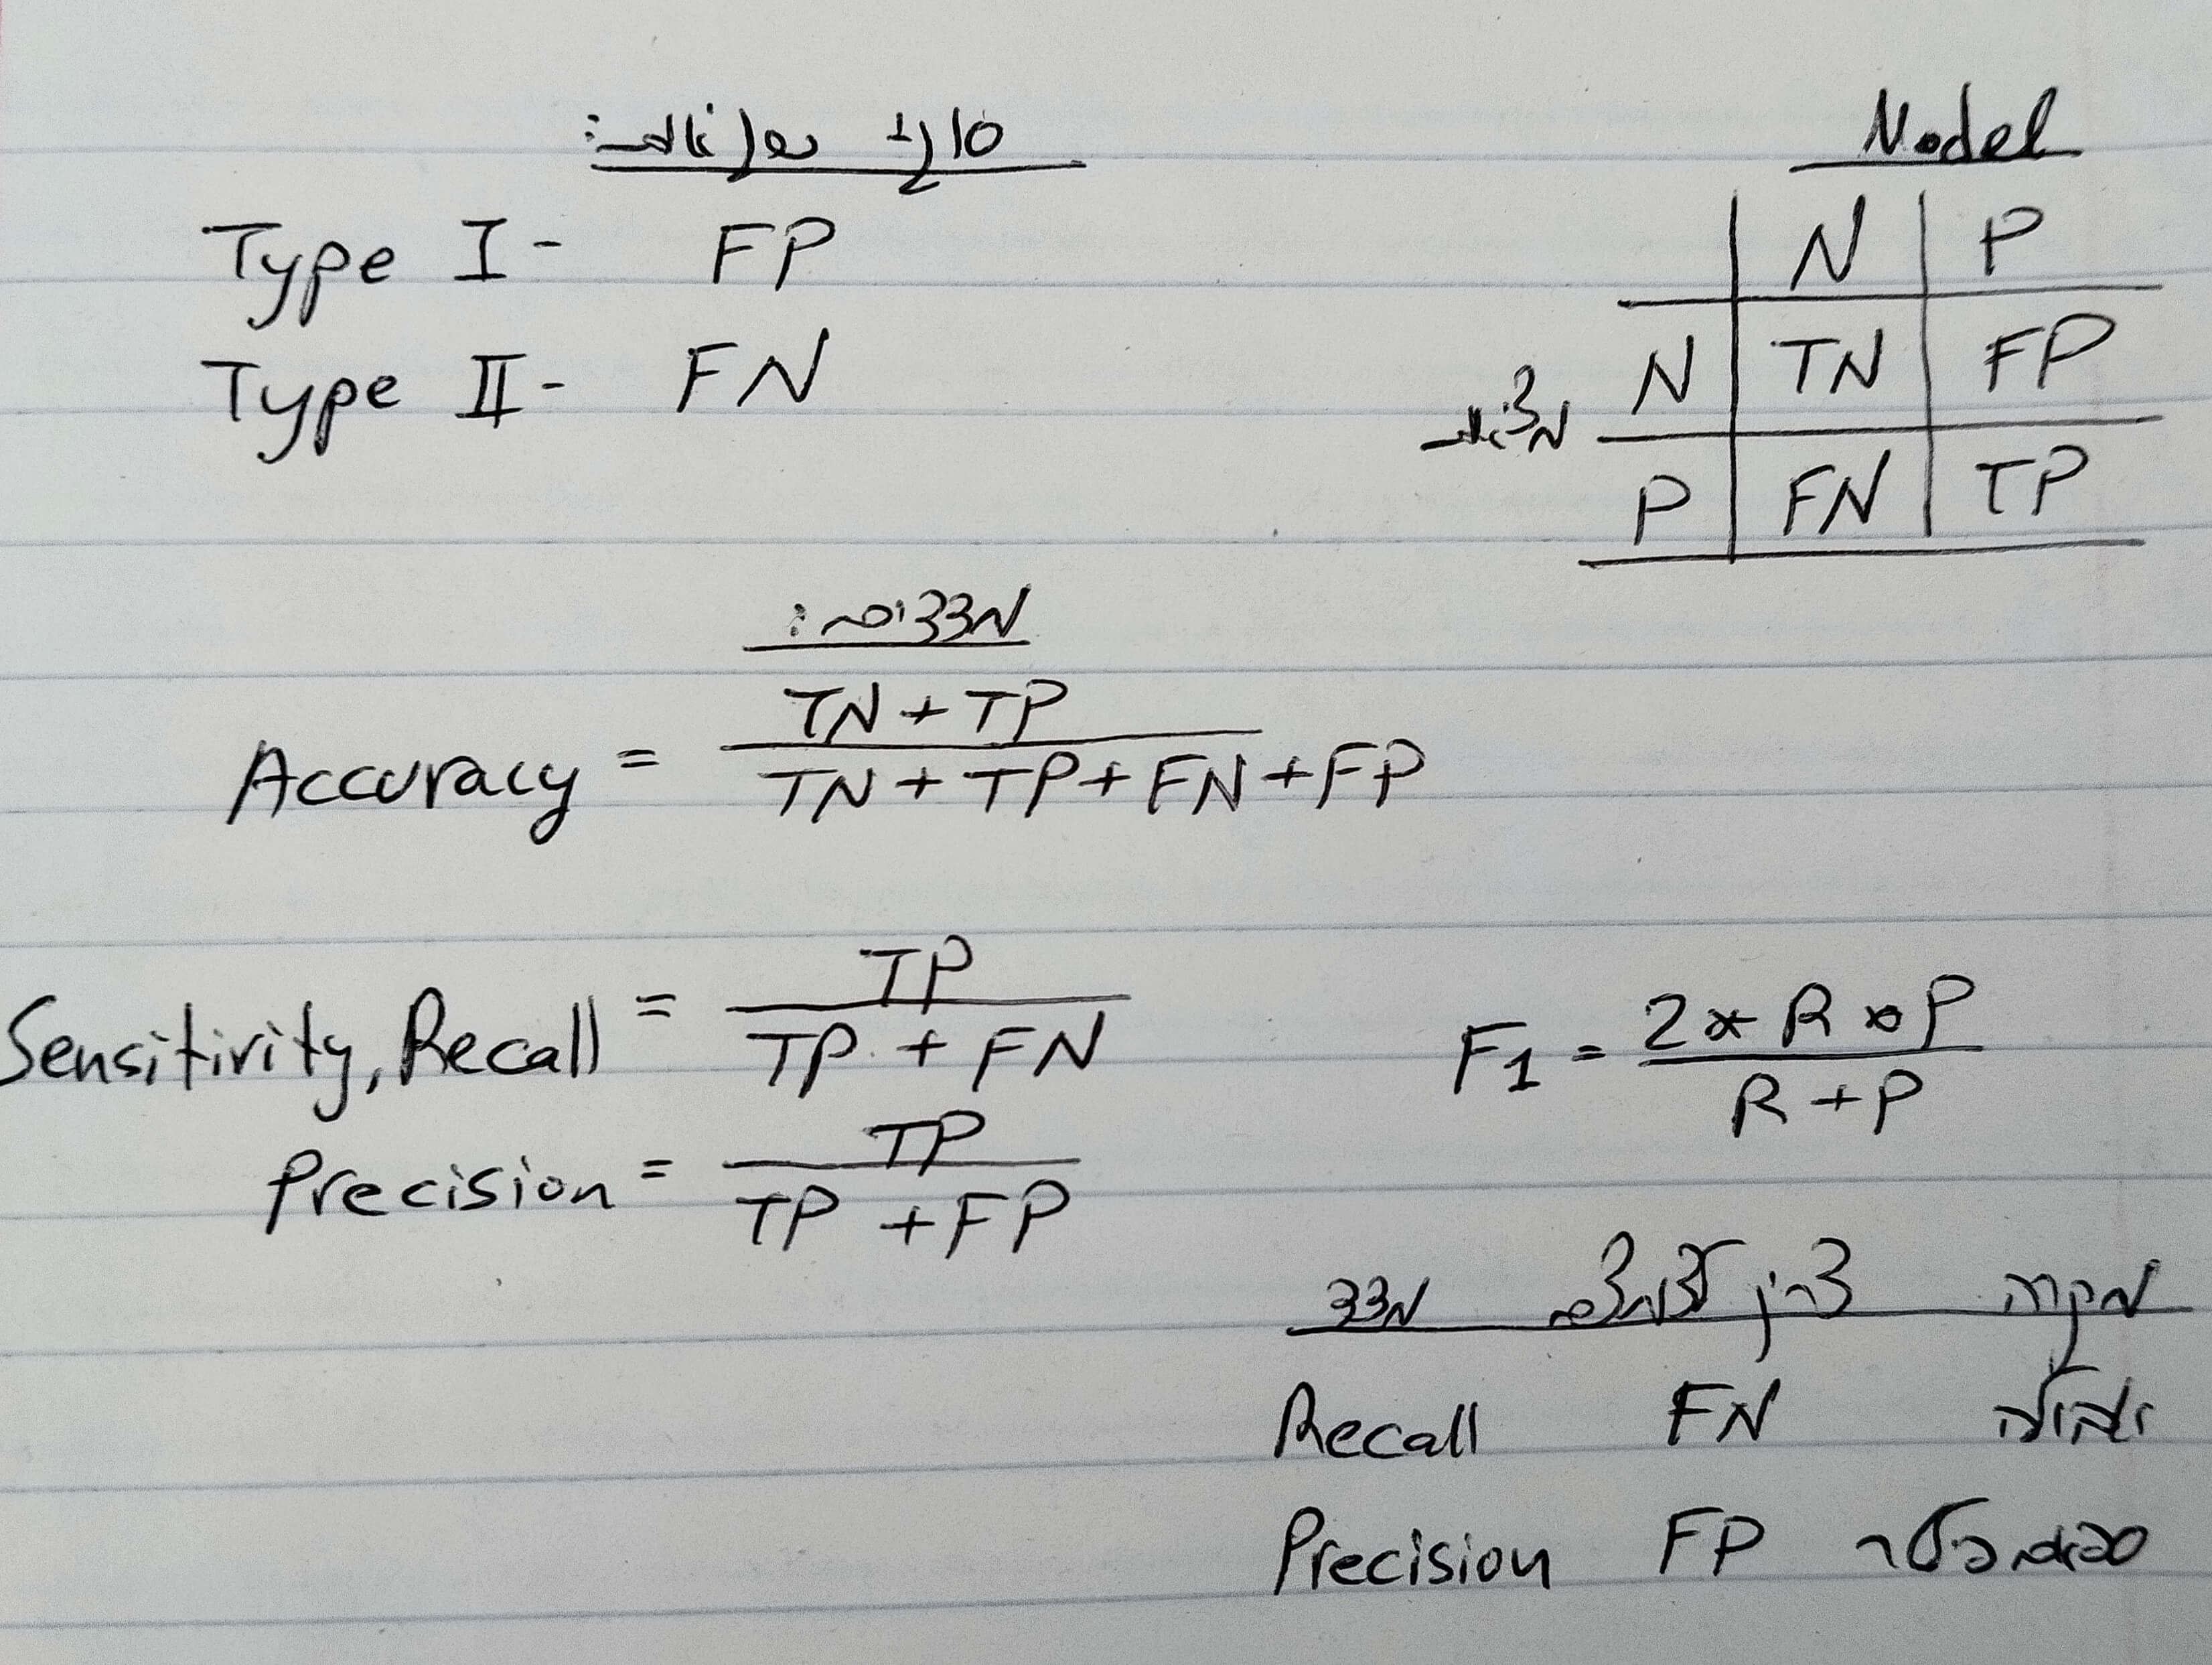 סוגי שגיאות:
Type I- FP
Type II- FN
Model
N P
N TN FP
מציאות
P FN TP
מדדים:
Accuracy = TN + TP / TN + TP + FN + FP
Sensitivity, Recall = TP / TP + FN
F1 = 2 * R * P / R + P
Precision = TP / TP + FP
מקרה צריך לצמצם מדד
Recall FN
Precision FP